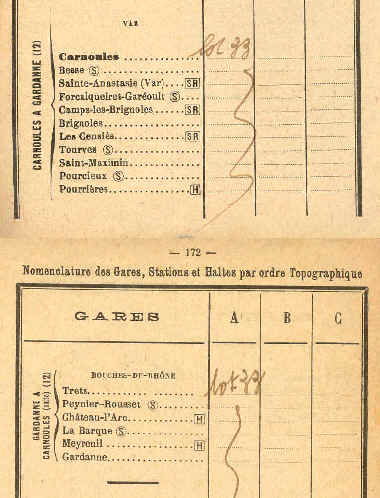 VAR
Carnoules lot 33
Besse Ⓢ
Sainte-Anastasie (Var) SR
Forcalqueiret-Garéoult Ⓢ
Camps-les-Brignoles SR
Brignoles
Les Censiés SR
Tourves Ⓢ
Saint-Maximin
Pourcieux Ⓢ
Pourrières H
CARNOULES A GARDANNE (12)
— 172 —
Nomenclature des Gares, Stations et Haltes par ordre Topographique
GARES A B C
BOUCHES-DU-RHÔNE
Trets lot 33
Peynier-Rousset Ⓢ
Château-l'Arc H
La Barque Ⓢ
Meyreuil H
Gardanne
GARDANNE A
CARNOULES (12)